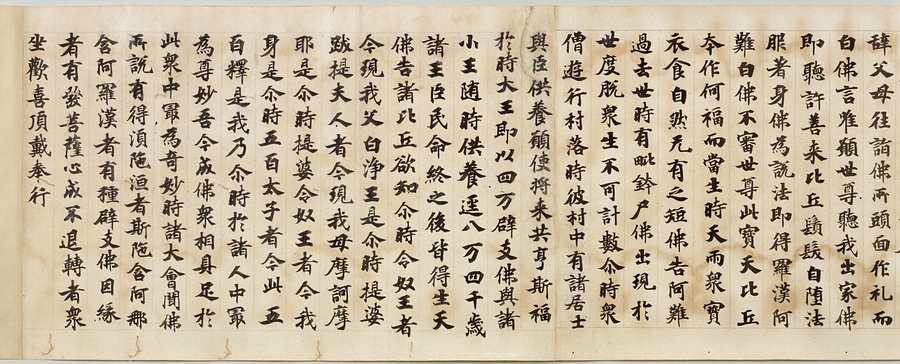 辞父母往詣佛所頭面作礼而
白佛言唯願世尊聽我出家佛
即聽許善来比丘鬚髮自堕法
服著身佛為說法即得羅漢阿
難白佛不審世尊此寶天比丘
本作何福而當生時天雨衆寶
衣食自然无有之短佛告阿難
過去世時有毗鉢尸佛出現於
世度脫衆生不可計數尒時衆
僧遊行村落時彼村中有諸居士
與臣供養願使将来共享斯福
於時大王即以四万辟支佛與諸
小王随時供養逕八万四千歲
諸王臣民命終之後皆得生天
佛告諸比丘欲知尒時令奴王者
今現我父白淨王是尒時提婆
跋提夫人者今現我母摩訶摩
耶是尒時提婆令奴王者今我
身是尒時五百太子者今此五
百釋是我乃尒時於諸人中冣
為尊妙吾今成佛衆相具足於
此衆中冣為奇妙時諸大會聞佛
所說有得湏陁洹者斯陁含阿那
含阿羅漢者有種辟支佛因緣
者有發菩薩心成不退轉者衆
坐歡喜頂戴奉行